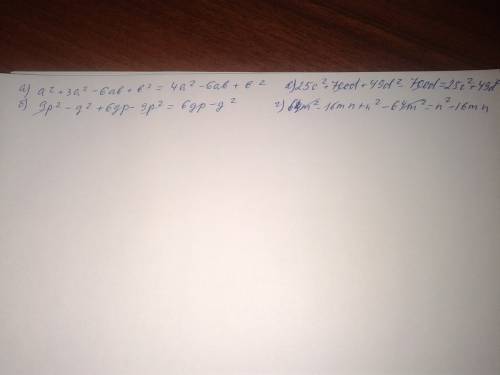 а) a² + 3a² - 6ab + b² = 4a² - 6ab + b²
б) 9p² - g² + 6gp - 9p² = 6gp - g²
в) 25c² + 70cd + 49d² - 70cd = 25c² + 49d²
г) 64m² - 16mn + n² - 64m² = n² - 16mn